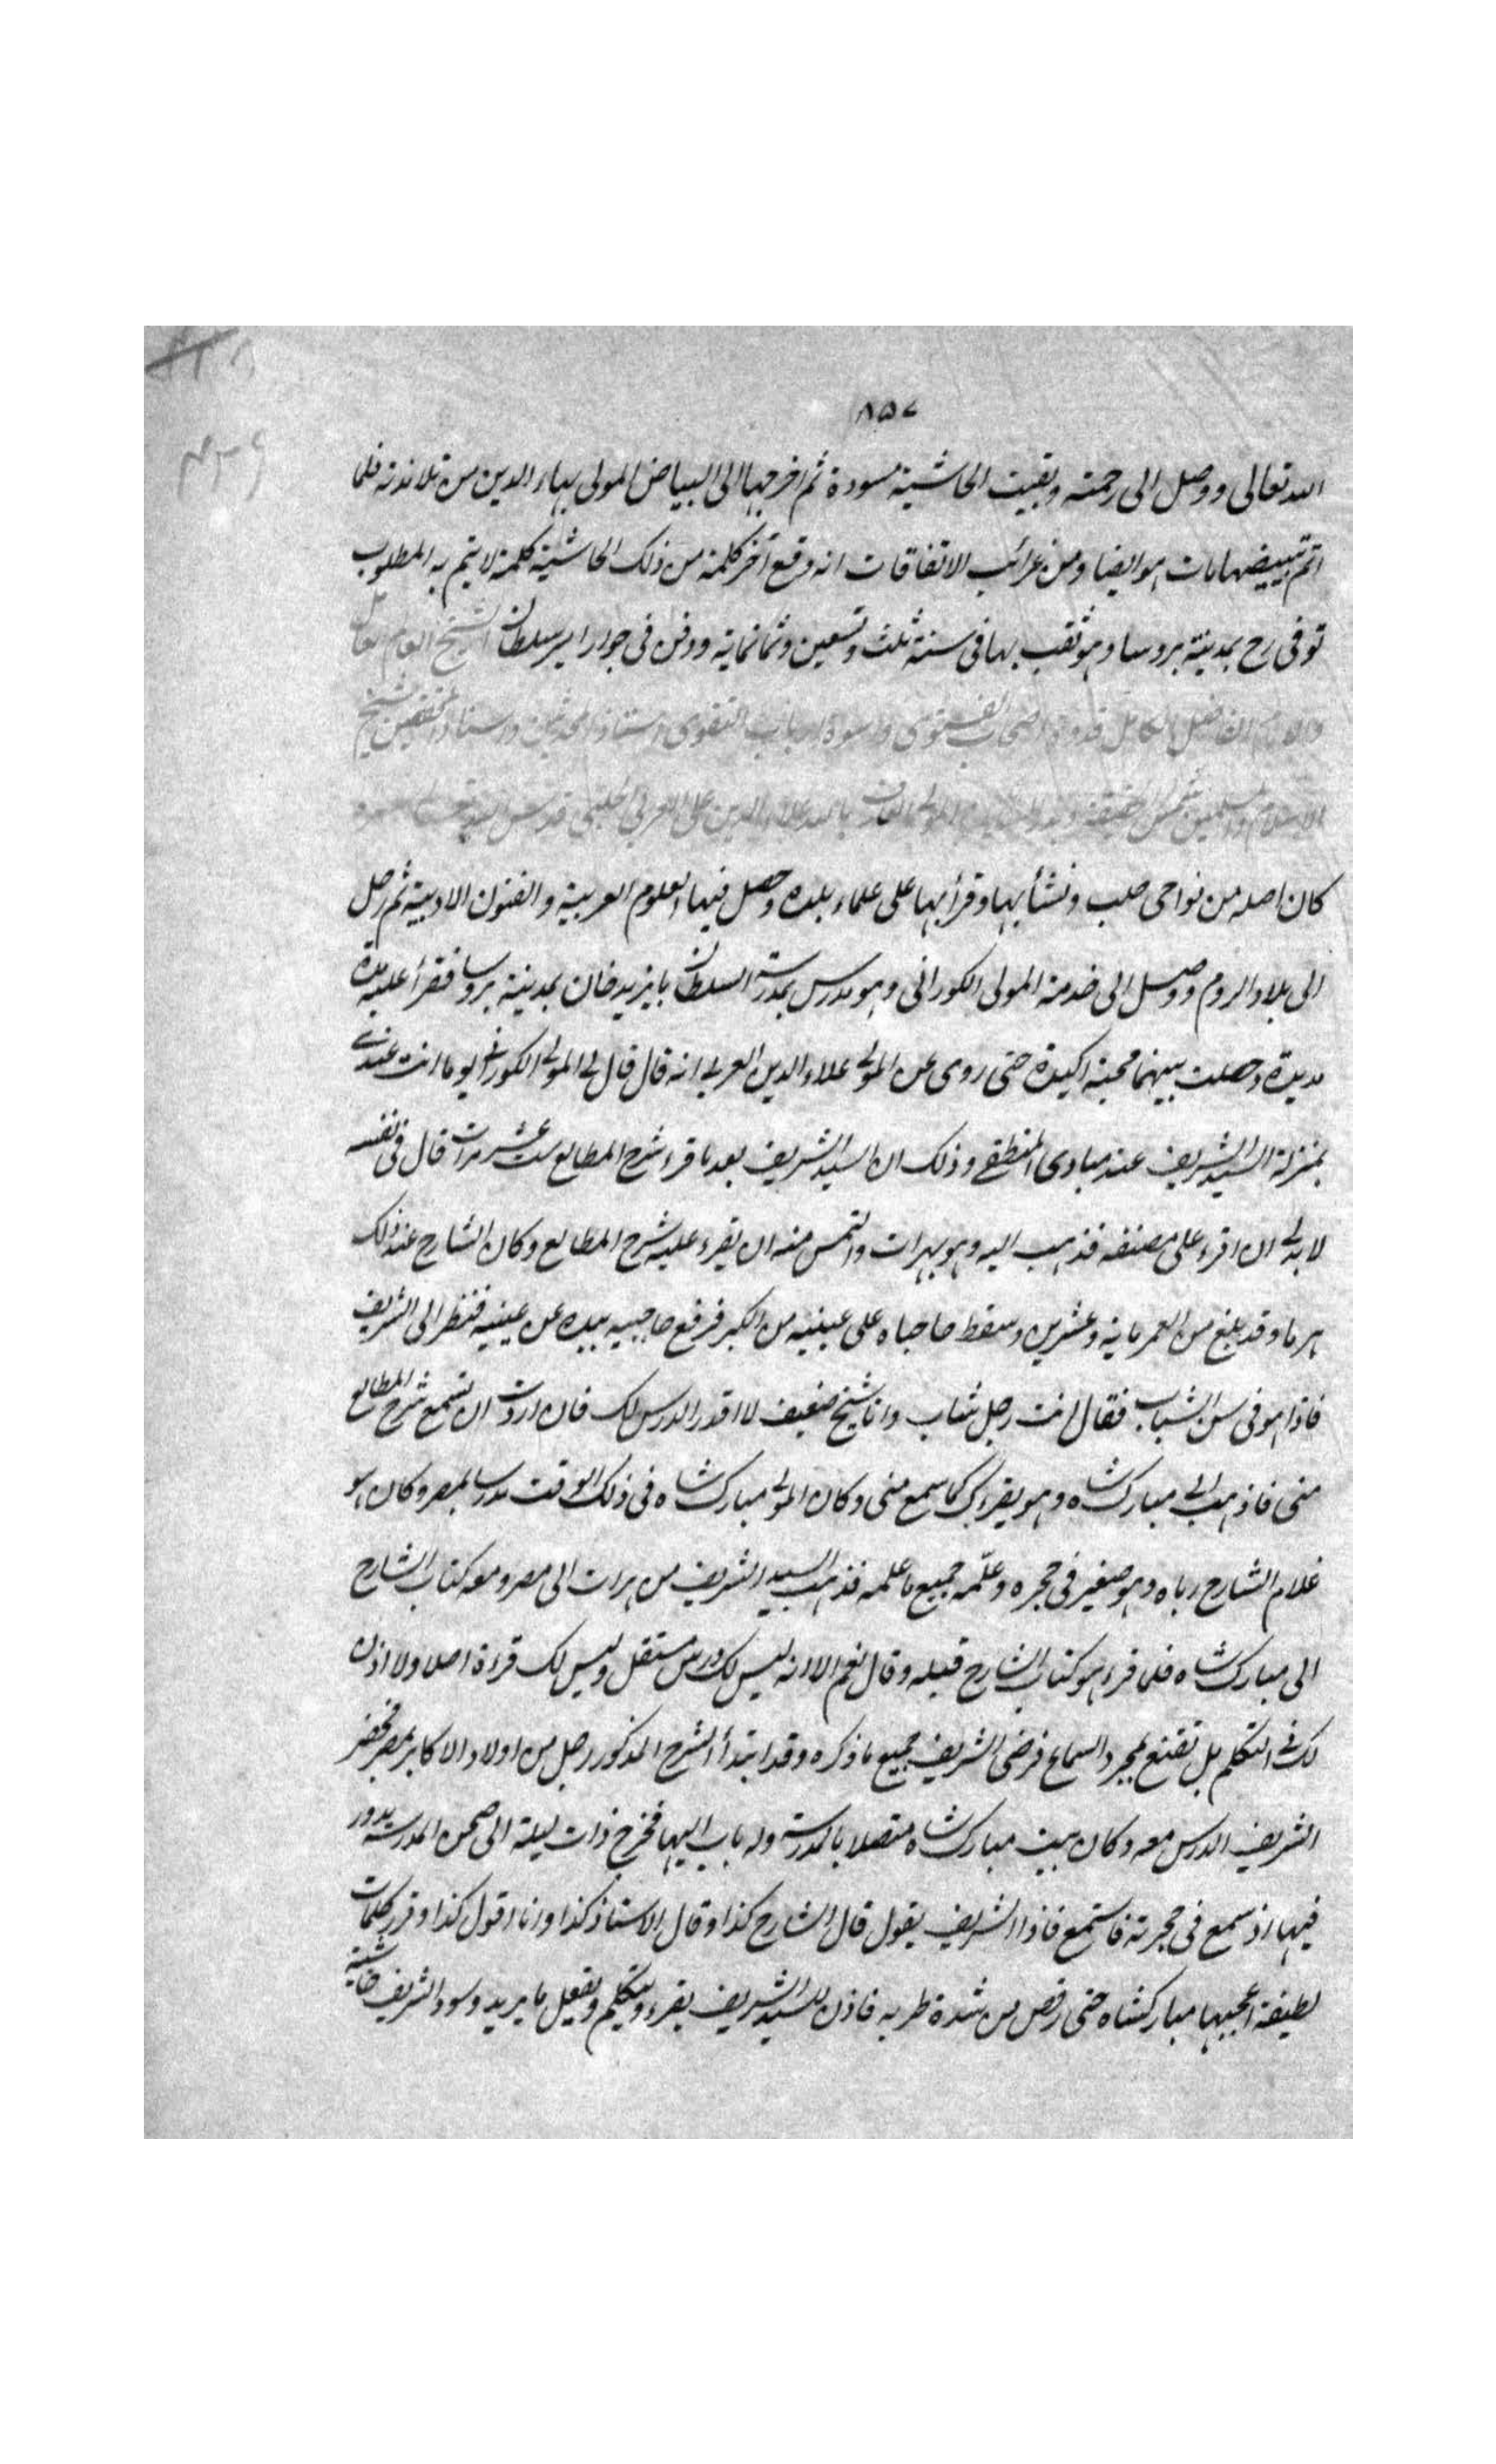 ٨٥٧
الله تعالى ووصل الى رحمته وبقيت الحاشية مسودة ثم اخرجها الى البياض المولى بهاء الدين من تلامذته فلما
اتم تبييضها مات هو ايضا ومن غرائب الاتفاقات انه وقع آخر كلمة من ذلك الحاشية كلمة لا يتم به المطلوب
توفى رح بمدينة بروسا وهو بها فى سنة ثلث وتسعين وثمانمائة ودفن فى جوار امير سلطان الشيخ العالم العامل
والامام الفاضل الكامل قدوة اصحاب الفتوى واسوة ارباب التقوى استاذ المحدثين وسناد المحققين شيخ
الاسلام والمسلمين شمس الحقيقة المولى العارف بالله علاء الدين على العربى الحلبى قدس الله تعالى سره
كان اصله من نواحى حلب ونشأ بها وقرأ بها على علماء بلده وحصل فيها العلوم العربية والفنون الادبية ثم رحل
الى بلاد الروم ووصل الى خدمة المولى الكورانى وهو مدرس بمدرسة السلطان بايزيد خان بمدينة بروسا فقرأ عليه مدة
مديدة وحصلت بينهما محبة اكيدة حتى روى عن المولى علاء الدين العربى انه قال قال لى المولى الكورانى يوما انت عندى
بمنزلة السيد الشريف عند مبارك المنطقى وذلك ان السيد الشريف بعد ما قرء شرح المطالع ست عشرة مرات قال فى نفسه
لا بد لى ان اقرء على مصنفه فذهب اليه وهو بهرات والتمس منه ان يقرء عليه شرح المطالع وكان الشارح عند ذلك
هرما وقد بلغ من العمر مائة وعشرين وسقط حاجباه على عينيه من الكبر فرفع حاجبيه بيده عن عينيه فنظر الى الشريف
فاذا هو فى سن الشباب فقال انت رجل شاب وانا شيخ ضعيف لا اقدر الدرس لك فان اردت ان تسمع شرح المطالع
منى فاذهب الى مبارك شاه وهو يقرئك كما سمع منى وكان المولى مبارك شاه فى ذلك الوقت مدرسا بمصر وكان هو
غلام الشارح رباه وهو صغير فى حجره وعلّمه جميع ما علمه فذهب السيد الشريف من هرات الى مصر ومعه كتاب الشارح
الى مبارك شاه فلما قرء هو كتاب الشارح قبله وقال نعم الا انه ليس لك درس مستقل وليس لك قراءة اصلا ولا اذن
لك فى التكلم بل تقنع بمجرد السماع فرضى الشريف بجميع ما ذكره وقد ابتدأ الشرح المذكور رجل من اولاد الاكابر بمصر فحضر
الشريف الدرس معه وكان بيت مبارك شاه متصلا بالمدرسة وله باب اليها فخرج ذات ليلة الى صحن المدرسة يدور
فيها اذ سمع فى حجرته فاستمع فاذا الشريف يقول قال الشارح كذا وقال الاستاذ كذا وانا اقول كذا وقرر كلمات
لطيفة اعجبها مبارك شاه حتى رقص من شدة طربه فاذن للسيد الشريف يقرء ويتكلم ويفعل ما يريد وسود الشريف حاشية